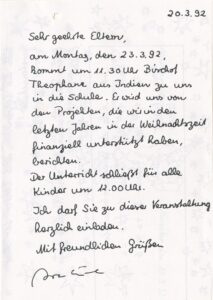 20.3.92
Sehr geehrte Eltern,
am Montag, den 23.3.92,
kommt um 11.30 Uhr Bischof
Theophane aus Indien zu uns
in die Schule. Er wird uns von
den Projekten, die wir in den
letzten Jahren in der Weihnachtszeit
finanziell unterstützt haben,
berichten.
Der Unterricht schließt für alle
Kinder um 12.00 Uhr.
Ich darf Sie zu dieser Veranstaltung
herzlich einladen.
Mit freundlichen Grüßen